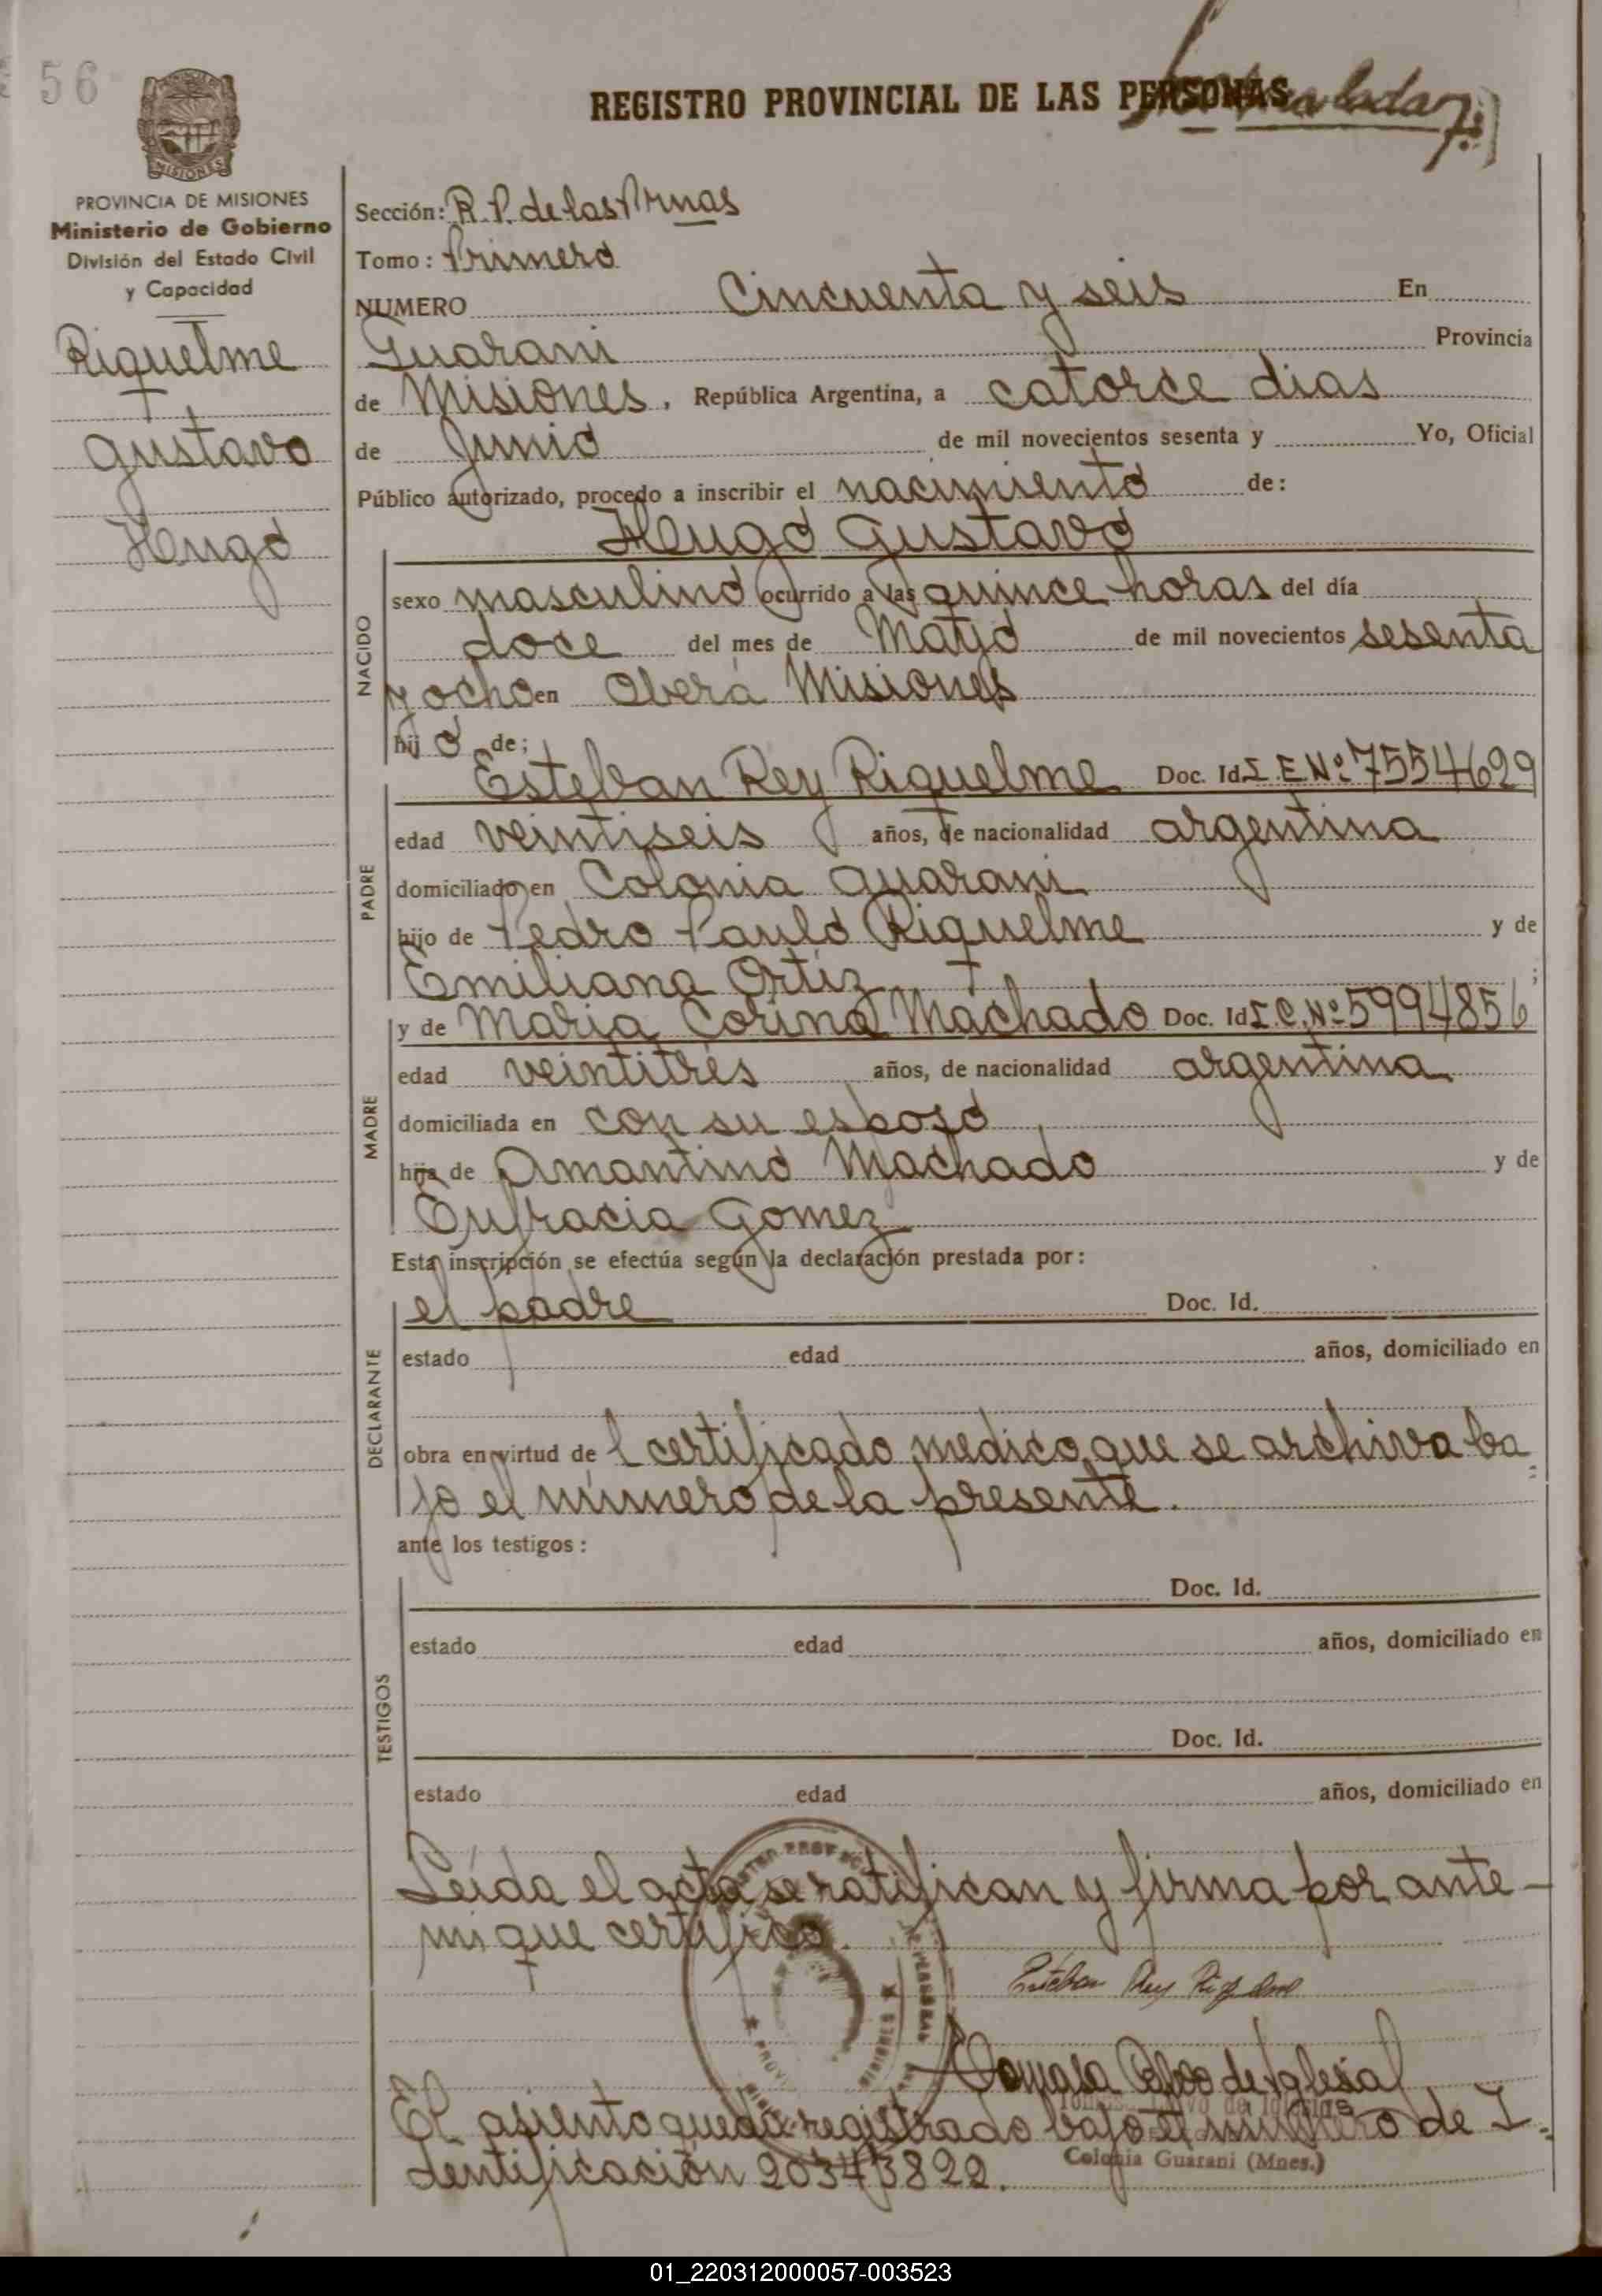 56
REGISTRO PROVINCIAL DE LAS PERSONAS
MISIONES
PROVINCIA DE MISIONES
Ministerio de Gobierno
División del Estado Civil
y Capacidad
Riquelme
Gustavo
Hugo
Sección: R. P. de las Prnas
Tomo: Primero
NUMERO Cincuenta y seis En
Guarani Provincia
de Misiones, República Argentina, a catorce dias
de Junio de mil novecientos sesenta y Yo, Oficial
Público autorizado, procedo a inscribir el nacimiento de:
Hugo Gustavo
NACIDO
sexo masculino ocurrido a las quince horas del día
doce del mes de Mayo de mil novecientos sesenta
y ocho en Oberá Misiones
hijo de;
PADRE
Esteban Rey Riquelme Doc. Id. L. E. Nº 7554629
edad veintiseis años, de nacionalidad argentina
domiciliado en Colonia Guarani
hijo de Pedro Paulo Riquelme y de
Emiliana Ortiz ;
MADRE
y de Maria Corina Machado Doc. Id. L. C. Nº 5994856
edad veintitrés años, de nacionalidad argentina
domiciliada en con su esposo
hija de Amantino Machado y de
Eufracia Gomez
Esta inscripción se efectúa según la declaración prestada por:
DECLARANTE
el padre Doc. Id.
estado edad años, domiciliado en
obra en virtud del certificado medico que se archiva ba=
jo el número de la presente.
ante los testigos:
TESTIGOS
Doc. Id.
estado edad años, domiciliado en
Doc. Id.
estado edad años, domiciliado en
Leida el acta se ratifican y firma por ante-
mi que certifico.
Esteban Rey Riquelme
de Iglesias
El asiento queda registrado bajo el número de I=
dentificación 20343822.
Colonia Guarani (Mnes.)
01_220312000057-003523